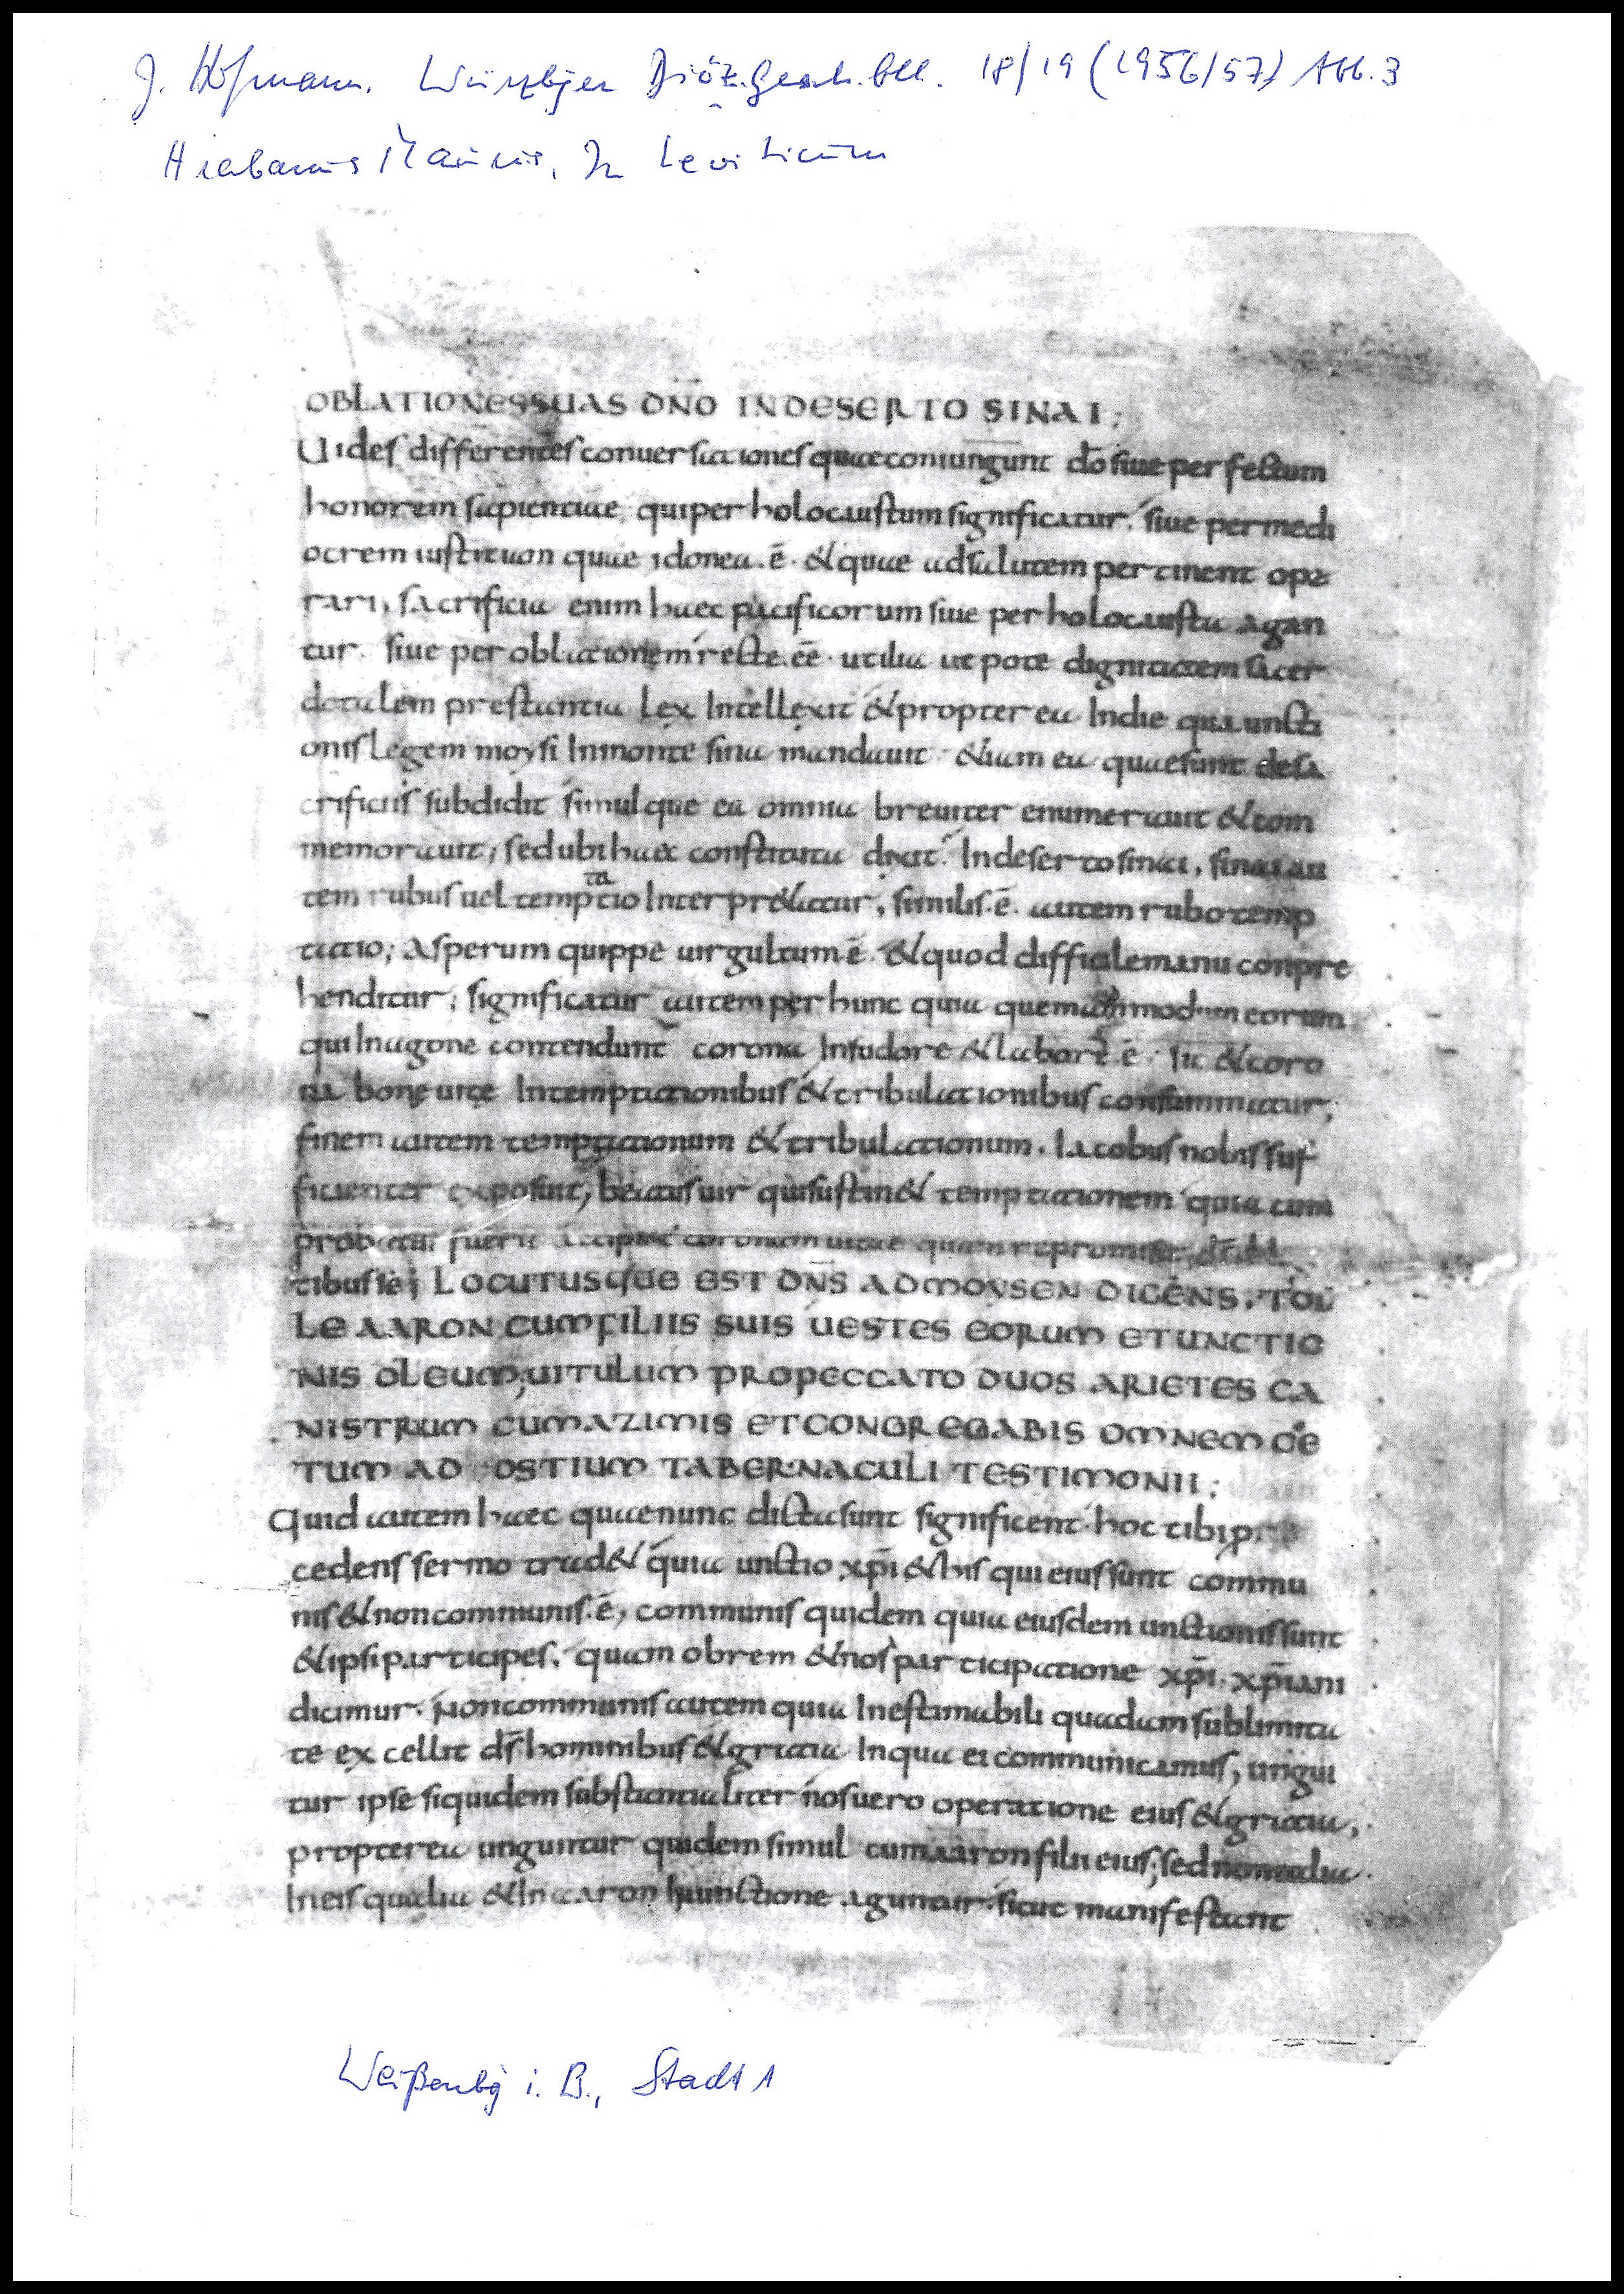 J. Hofmann. Würzbger Diöz.gesch.bll. 18/19 (1956/57) Abb. 3
Hrabanus Maurus, In Leviticum
OBLATIONESSUAS DN̄O INDESERTO SINAI;
Uides differentes conuersationes quaeconiungunt d̄o siue perfectum
honorem sapientiae quiper holocaustum significatur. siue permedi
ocrem iustitiam quae idonea.ē. &quae adsalutem pertinent ope
rari, sacrificia enim haec pacificorum siue per holocausta agan
tur. siue per oblationem recte.eē. utilia ut pote dignitatem sacer
dotalem prestantia lex Intellexit &propter ea Indie qua uncti
onis legem moysi Inmonte sina mandauit. &iam ea quaesunt desa
crificiis subdidit simulque ea omnia breuiter enumerauit &com
memorauit; sed ubi haec constituta dixit. Indeserto sinai, sinai au
tem rubus uel temptatio Interpr&atur, similis.ē. autem rubo temp
tatio; asperum quippe uirgultum ē. &quod difficile manu conpre
henditur; significatur autem per hunc quia quemadmodum eorum
quiInagone contendunt corona Insudore &labore.ē. sic &coro
na bonę uitę Intemptationibus &tribulationibus consummatur;
finem autem temptationum &tribulationum. Iacobus nobis suf
ficienter exposuit; beatus uir quisustin& temptationem quia cum
probatus fuerit accipi& coronam uitae quam repromisit d̄s
tibus se; LOCUTUSQUE EST DN̄S AD MOYSEN DICENS, TOL
LE AARON CUM FILIIS SUIS UESTES EORUM ET UNCTIO
NIS OLEUM, UITULUM PROPECCATO DUOS ARIETES CA
NISTRUM CUM AZIMIS ET CONGREGABIS OMNEM COE
TUM AD OSTIUM TABERNACULI TESTIMONII;
Quid autem haec quaenunc dictasunt significent hoc tibi
cedens sermo trad& quia unctio xp̄i &his qui eius sunt commu
nis &non communis.ē; communis quidem quia eiusdem unctionis sunt
&ipsi participes. quam obrem &nos participatione xp̄i. xp̄iani
dicimur. Non communis autem quia Inestimabili quadam sublimita
te excellit d̄s hominibus &gratia Inqua ei communicamus, ungui
tur ipse siquidem substantialiter nos uero operatione eius &gratia,
propterea unguntur quidem simul cum aaron filii eius; sed non eadem
Ineis quadia &In aaron Inunctione aguntur. sicut manifestant
Weißenbg i. B., Stadt 1